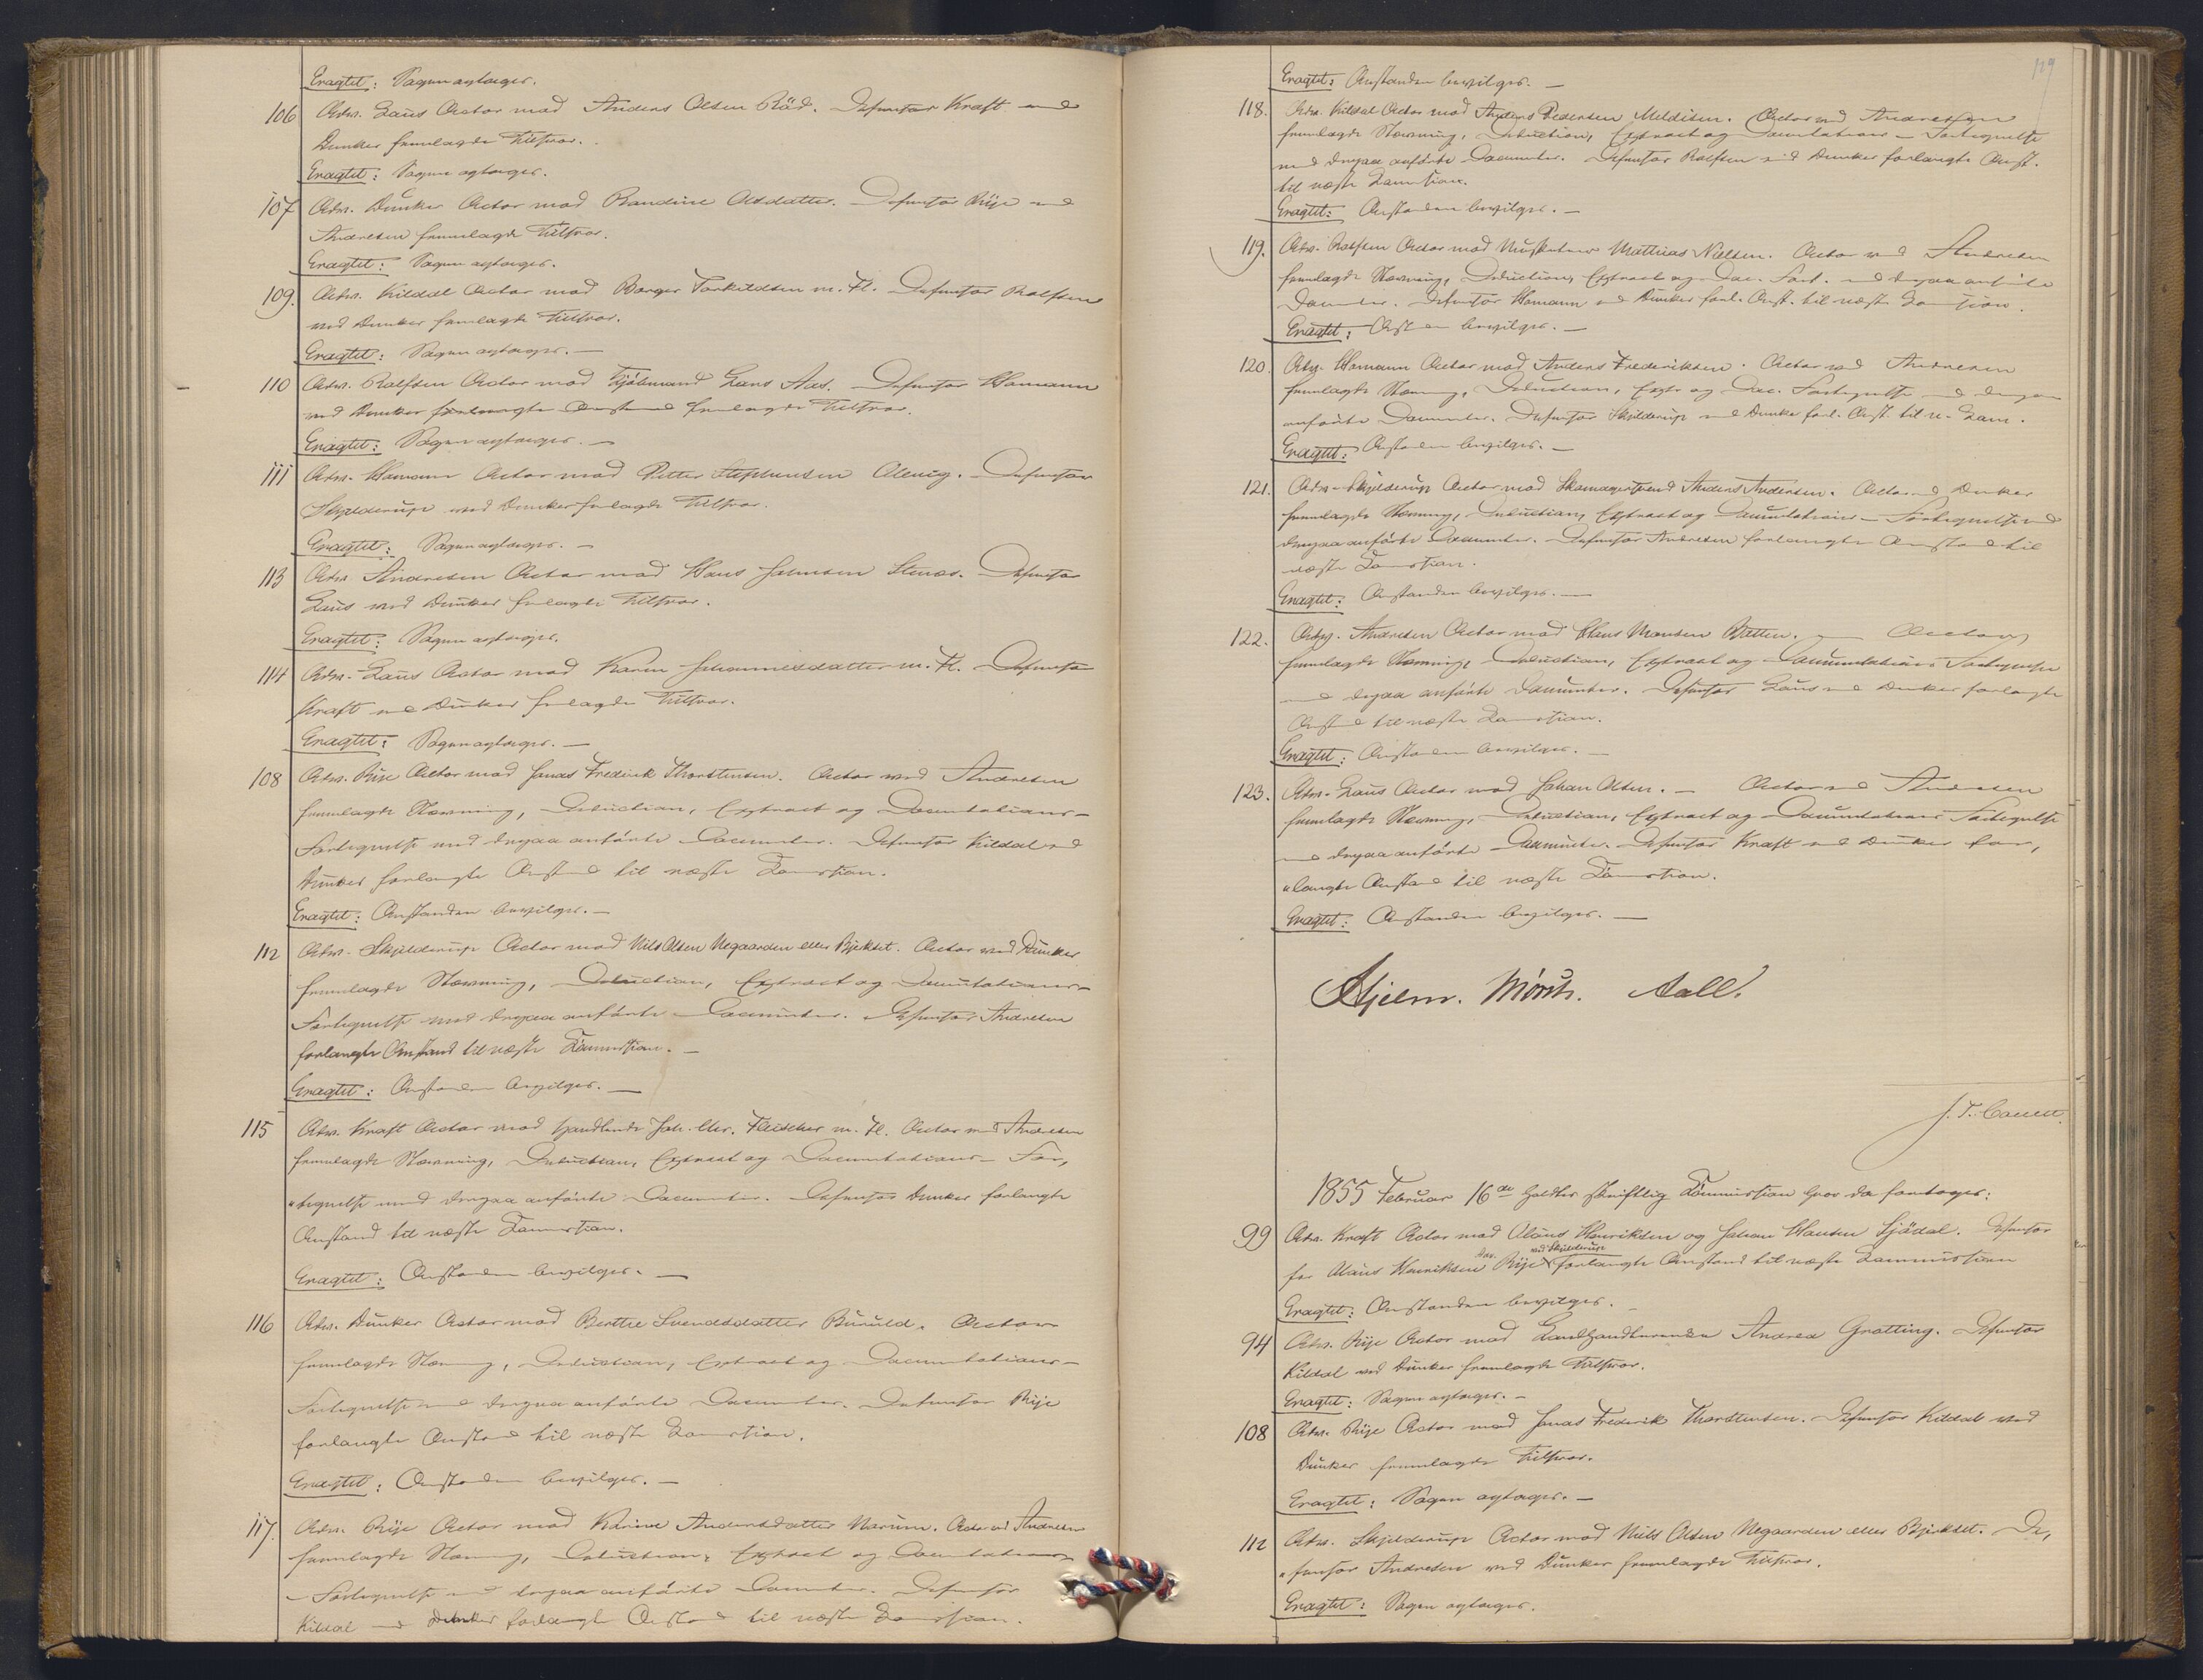 Eragtet: Sagen optages.
106 Adv. Laus Actor mod Anders Olsen Röd. Defensor Kraft ved
Dunker fremlagde Tilsvar.
Eragtet: Sagen optages.
107 Adv. Dunker Actor mod Randine Olsdatter. Defensor Rije ved
Andresen fremlagde Tilsvar.
Eragtet: Sagen optages.
109. Adv. Kildal Actor mod Borger Torkildsen m. Fl. Defensor Rolfsen
ved Dunker fremlagde Tilsvar.
Eragtet: Sagen optages. —
110 Adv. Rolfsen Actor mod Kjöbmand Lans Aas. Defensor Homann
ved Dunker forlangte Anstand fremlagde Tilsvar.
Eragtet: Sagen optages. —
111 Adv. Homann Actor mod Petter Stephensen Olenig. Defensor
Skjelderup ved Dunker fremlagde Tilsvar.
Eragtet: Sagen optages. —
113 Adv. Andresen Actor mod Hans Johnsen Stenes. Defensor
Laus ved Dunker fremlagde Tilsvar.
Eragtet: Sagen optages.
114 Adv. Laus Actor mod Karen Johannesdatter m. Fl. Defensor
Kraft ved Dunker fremlagde Tilsvar.
Eragtet: Sagen optages. —
108 Adv. Rije Actor mod Jonas Frederik Thorstensen. Actor ved Andresen
fremlagde Stævning, Deduction, Extract og Documentations-
Fortegnelse med derpaa anförte Documenter. Defensor Kildal ved
Dunker forlangte Anstand til næste Commission.
Eragtet: Anstanden bevilges. —
112 Adv. Skjelderup Actor mod Nils Olsen Negaarden eller Bjekset. Actor ved Dunker
fremlagde Stævning, Deduction, Extract og Documentations-
Fortegnelse med derpaa anförte Documenter. Defensor Andresen
forlangte Anstand til næste Commission. —
Eragtet: Anstanden bevilges. —
115 Adv. Kraft Actor mod Handlende Joh. Chr. Fleischer m. Fl. Actor ved Andresen
fremlagde Stævning, Deduction, Extract og Documentations- For„
„tegnelse med derpaa anförte Documenter. Defensor Dunker forlangte
Anstand til næste Commission.
Eragtet: Anstanden bevilges. —
116 Adv. Dunker Actor mod Berthe Svendsdatter Buruld. Actor
fremlagde Stævning, Deduction, Extract og Documentations-
Fortegnelse med derpaa anförte Documenter. Defensor Rije
forlangte Anstand til næste Commission.
Eragtet: Anstanden bevilges. —
117. Adv. Rije Actor mod Karine Andersdatter Narum. Actor ved Andresen
fremlagde Stævning, Deduction, Extract og Documentations
- Fortegnelse med derpaa anförte Documenter. Defensor
Kildal ved Dunker forlangte Anstand til næste Commission.
119
Eragtet: Anstanden bevilges. —
118. Adv. Kildal Actor mod Anders Pedersen Meldisen. Actor ved Andresen
fremlagde Stævning, Deduction, Extract og Documentations- Fortegnelse
med derpaa anförte Documenter. Defensor Rolfsen ved Dunker forlangte Anst.
til næste Commission.
Eragtet: Anstanden bevilges. —
119. Adv. Rolfsen Actor mod Musketeer Mathias Nielsen. Actor ved Andresen
fremlagde Stævning, Deduction, Extract og Doc. Fort. med derpaa anförte
Documenter. Defensor Homann ved Dunker forl. Anst. til næste Commission.
Eragtet: Anstanden bevilges. —
120. Adv. Homann Actor mod Anders Frederiksen. Actor ved Andresen
fremlagde Stævning, Deduction, Extr. og Doc. Fortegnelse med derpaa
anförte Documenter. Defensor Skjelderup ved Dunker forl. Anst. til n. Com.
Eragtet: Anstanden bevilges. —
121. Adv. Skjelderup Actor mod Skomagersvend Anders Andersen. Actor ved Dunker
fremlagde Stævning, Deduction, Extract og Documentations- Fortegnelse med
derpaa anförte Documenter. Defensor Andresen forlangte Anstand til
næste Commission.
Eragtet: Anstanden bevilges. —
122. Adv. Andresen Actor mod Hans Monsen Batten. — Actor
fremlagde Stævning, Deduction, Extract og Documentations Fortegnelse
med derpaa anförte Documenter. Defensor Laus ved Dunker forlangte
Anstand til næste Commission.
Eragtet: Anstanden bevilges. —
123. Adv. Laus Actor mod Johan Olsen. — Actor ved Andresen
fremlagde Stævning, Deduction, Extract og Documentations Fortegnelse
med derpaa anförte Documenter. Defensor Kraft ved Dunker for„
„langte Anstand til næste Commission.
Eragtet: Anstanden bevilges. —
Hjelm. Mörch. Aall.
1855 Februar 16de holdtes skriftlig Commission hvor da foretoges:
99 Adv. Kraft Actor mod Olaus Henriksen og Johan Hansen Sjödal. Defensor
for Olaus Henriksen Adv. Rije ved Skjelderup forlangte Anstand til næste Commission
Eragtet: Anstanden bevilges. —
94 Adv. Rije Actor mod Landhandlerenke Andrea Grotting. Defensor
Kildal ved Dunker fremlagde Tilsvar.
Eragtet: Sagen optages. —
108 Adv. Rije Actor mod Jonas Frederik Thorstensen. Defensor Kildal ved
Dunker fremlagde Tilsvar.
Eragtet: Sagen optages. —
112 Adv. Skjelderup Actor mod Nils Olsen Negaarden eller Bjekset. De„
„fensor Andresen ved Dunker fremlagde Tilsvar.
Eragtet: Sagen optages.